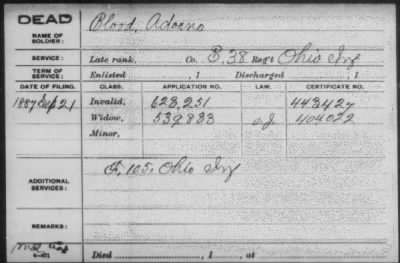 DEAD
NAME OF SOLDIER:
Blood, Adoeno
SERVICE:
Late rank, Co. E. 38 Reg't Ohio Inf
TERM OF SERVICE:
Enlisted , 1 Discharged , 1
DATE OF FILING. CLASS. APPLICATION NO. LAW. CERTIFICATE NO.
1887 Sep 21 Invalid, 623,251 443427
Widow, 539833 404022
Minor,
ADDITIONAL SERVICES:
F, 105. Ohio Inf
REMARKS:
Died , 1 , at